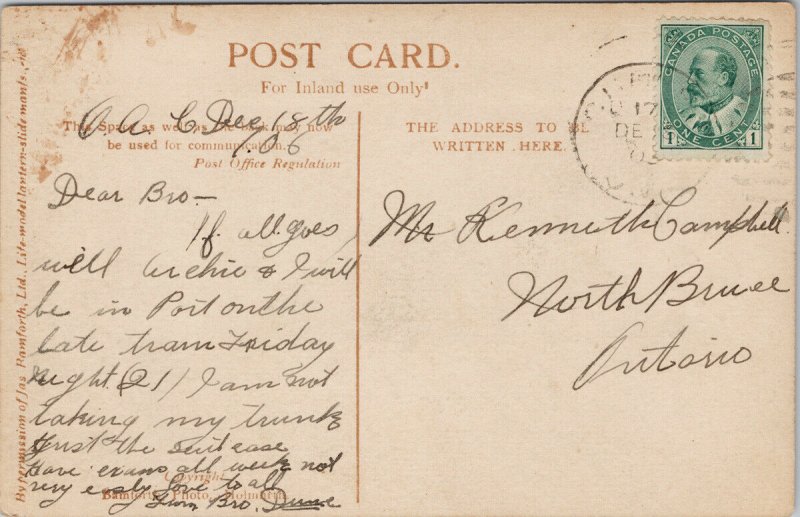 POST CARD.
For Inland use Only
This Space as well as the back may now
be used for communication.
Post Office Regulation
THE ADDRESS TO BE
WRITTEN HERE.
CANADA POSTAGE
1 ONE CENT 1
17
DE
O. A. C. Dec. 18th
06
Dear Bro—
If all goes
well Archie & I will
be in Port on the
late train Friday
night (21) I am not
taking my trunk
just the suitcase
Have exams all week not
very easy love to all
from Bro.
Mr Kenneth Campbell
North Bruce
Ontario
By permission of Jas Bamforth, Ltd., Life-model lantern-slide
Copyright
Bamforth, Photo., Holmfirth